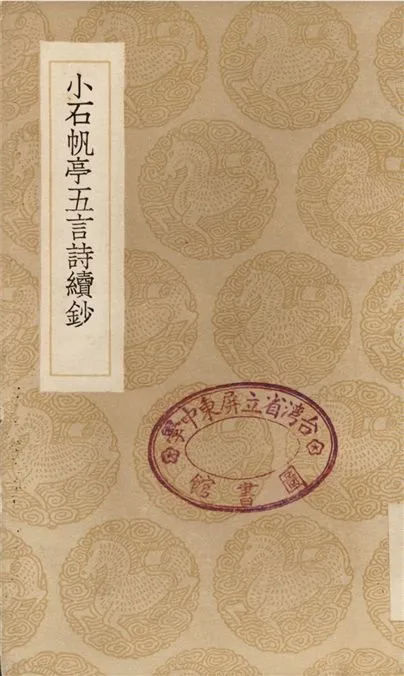 小石帆亭五言詩續鈔
台灣省立屏東中學
圖書館